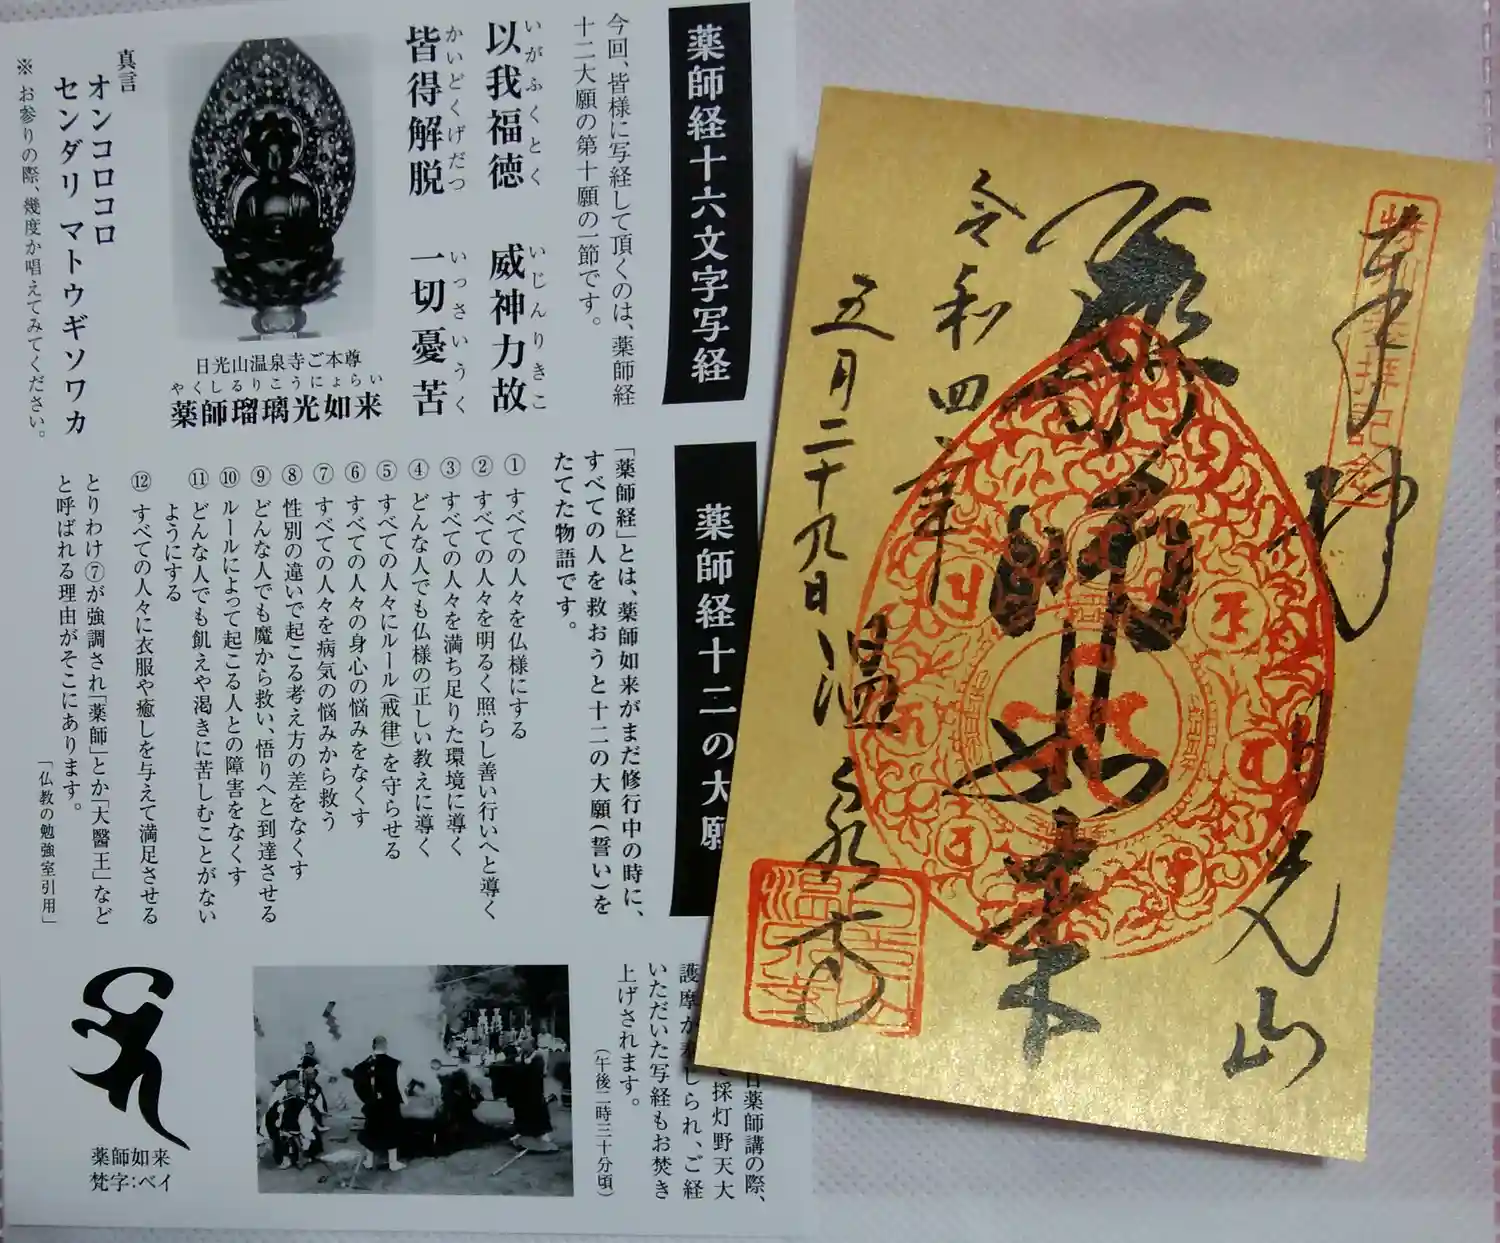 薬師経十六文字写経
今回、皆様に写経して頂くのは、薬師経
十二大願の第十願の一節です。
いがふくとく いじんりきこ
以我福徳 威神力故
かいどくげだつ いっさいうく
皆得解脱 一切憂苦
日光山温泉寺ご本尊
やくしるりこうにょらい
薬師瑠璃光如来
真言
オンコロコロ
センダリ マトウギソワカ
※ お参りの際、幾度か唱えてみてください。
薬師経十二の大願
「薬師経」とは、薬師如来がまだ修行中の時に、
すべての人を救おうと十二の大願(誓い)を
たてた物語です。
① すべての人々を仏様にする
② すべての人々を明るく照らし善い行いへと導く
③ すべての人々を満ち足りた環境に導く
④ どんな人でも仏様の正しい教えに導く
⑤ すべての人々にルール(戒律)を守らせる
⑥ すべての人々の身心の悩みをなくす
⑦ すべての人々を病気の悩みから救う
⑧ 性別の違いで起こる考え方の差をなくす
⑨ どんな人でも魔から救い、悟りへと到達させる
⑩ ルールによって起こる人との障害をなくす
⑪ どんな人でも飢えや渇きに苦しむことがない
ようにする
⑫ すべての人々に衣服や癒しを与えて満足させる
とりわけ⑦が強調され「薬師」とか「大醫王」など
と呼ばれる理由がそこにあります。
「仏教の勉強室引用」
日薬師講の際、
採灯野天大
護摩が
しられ、ご経
いただいた写経もお焚き
上げされます。
(午後二時三十分頃)
薬師如来
梵字:ベイ
特別参拝記念
奉拝
日光山
薬師如来
令和四年
五月二十九日
温泉寺